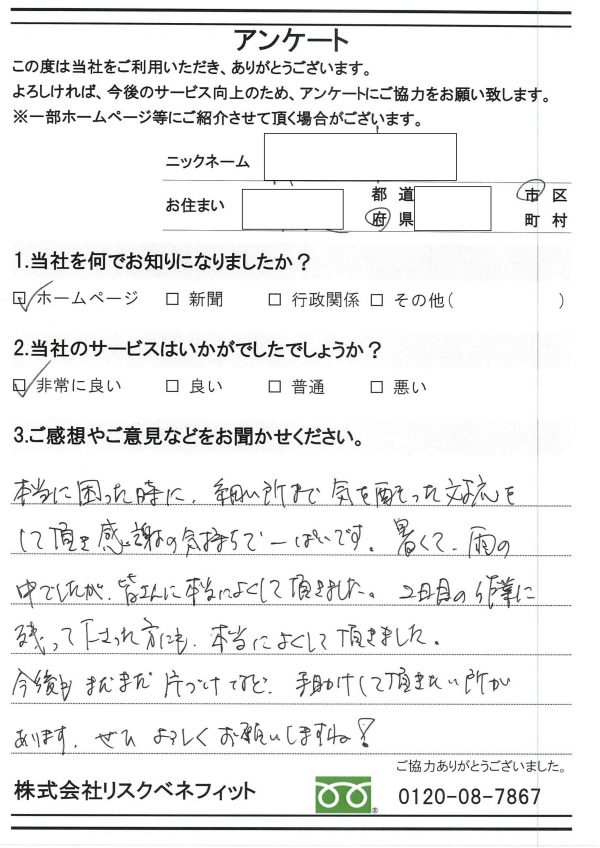 アンケート
この度は当社をご利用いただき、ありがとうございます。
よろしければ、今後のサービス向上のため、アンケートにご協力をお願い致します。
※一部ホームページ等にご紹介させて頂く場合がございます。
ニックネーム
お住まい 都 道 府 県 市 区 町 村
1.当社を何でお知りになりましたか？
☑ ホームページ □ 新聞 □ 行政関係 □ その他( )
2.当社のサービスはいかがでしたでしょうか？
☑ 非常に良い □ 良い □ 普通 □ 悪い
3.ご感想やご意見などをお聞かせください。
本当に困った時に、細い所まで気を配もった対応を
して頂き感謝の気持ちで一ぱいです。暑くて、雨の
中でしたが、皆さんに本当によくして頂きました。2日目の作業に
残って下さった方にも、本当によくして頂きました。
今後も まだまだ 片づけなど、手助けして頂きたい所が
あります。ぜひ よろしくお願いしますね！
ご協力ありがとうございました。
株式会社リスクベネフィット
0120-08-7867